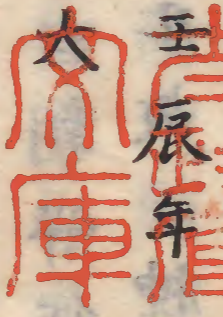 壬辰年
大
文庫